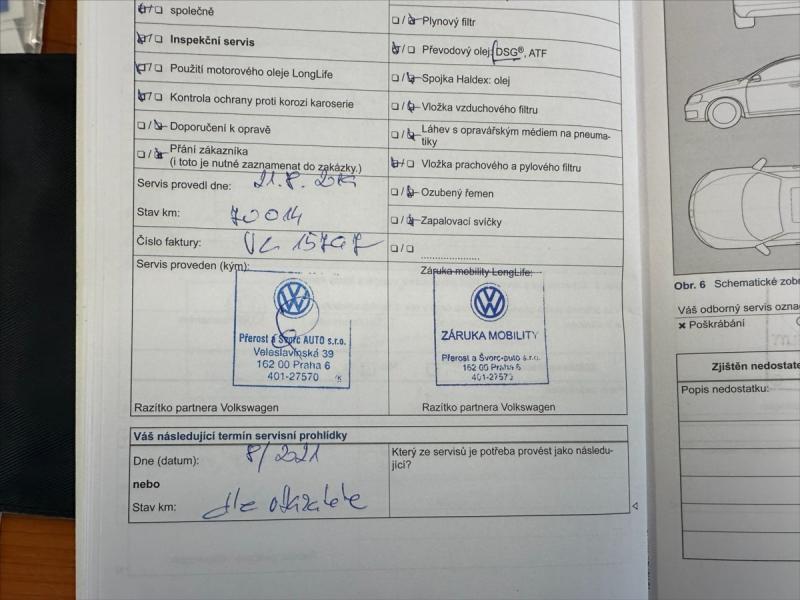 společně
Inspekční servis
Použití motorového oleje LongLife
Kontrola ochrany proti korozi karoserie
Doporučení k opravě
Přání zákazníka
(i toto je nutné zaznamenat do zakázky.)
Servis provedl dne: 21. 8.
Stav km: 70014
Číslo faktury:
Servis proveden (kým):
Přerost a Švorc AUTO s.r.o.
Veleslavínská 39
162 00 Praha 6
401-27570
Razítko partnera Volkswagen
Plynový filtr
Převodový olej DSG®, ATF
Spojka Haldex: olej
Vložka vzduchového filtru
Láhev s opravářským médiem na pneuma-
tiky
Vložka prachového a pylového filtru
Ozubený řemen
Zapalovací svíčky
Záruka mobility LongLife:
ZÁRUKA MOBILITY
Přerost a Švorc-auto s.r.o.
162 00 Praha 6
401-27570
Razítko partnera Volkswagen
Váš následující termín servisní prohlídky
Dne (datum): 8/2021
nebo
Stav km: dle ukazatele
Který ze servisů je potřeba provést jako následu-
jící?
Obr. 6 Schematické zob
Váš odborný servis označ
Poškrábání
Zjištěn nedostate
Popis nedostatku: